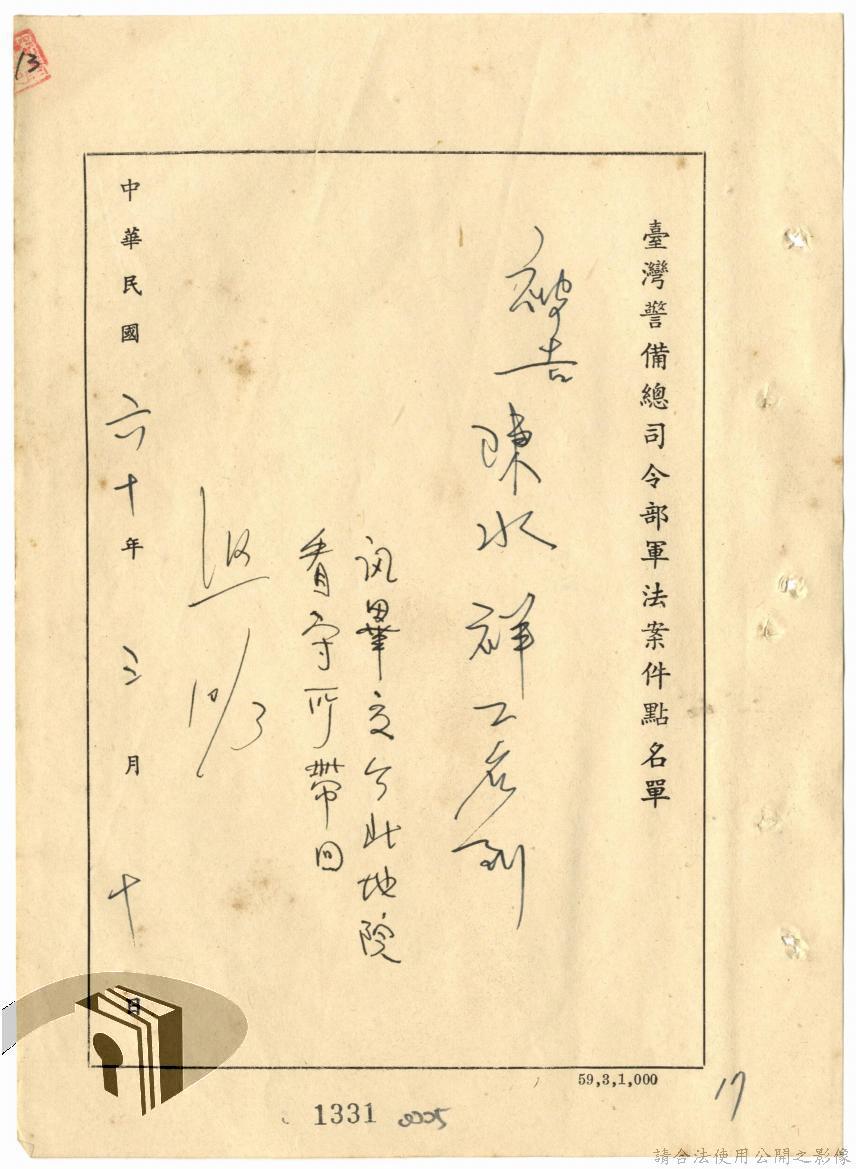 臺灣警備總司令部軍法案件點名單
被告 陳水祥 工 到
訊畢交 北地院
看守所帶回
10/3
中華民國六十年三月十日
13
59,3,1,000
17
1331
請合法使用公開之影像